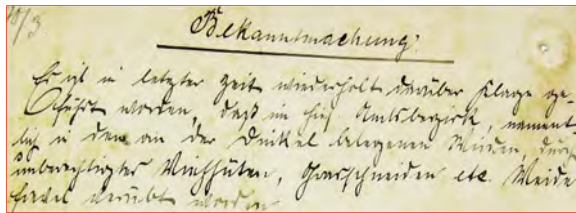 10/3
Bekanntmachung.
Es ist in letzter Zeit wiederholt darüber Klage ge-
führt worden, daß im hies. Amtsbezirk, nament
lich in den an der Dinkel belegenen Wiesen, durch
unberechtigtes Viehhüten, Grasschneiden etc. Weide
frevel verübt worden